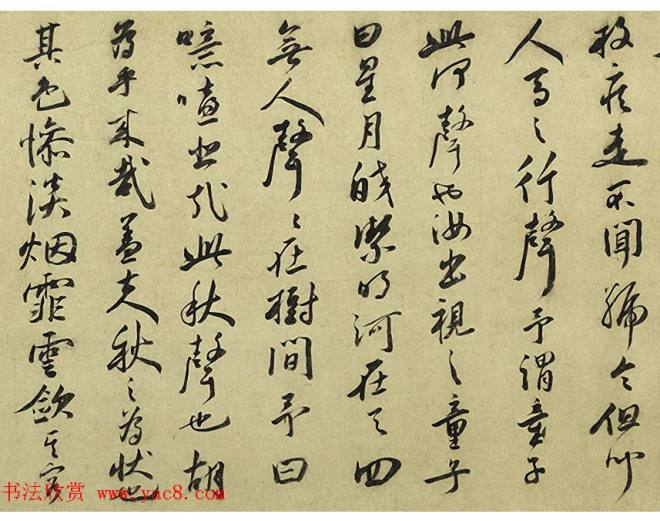 枚疾走不聞號令但聞
人馬之行聲予謂童子
此何聲也汝出視之童子
曰星月皎潔明河在天四
無人聲聲在樹間予曰
噫嘻悲哉此秋聲也胡
為乎來哉蓋夫秋之為狀也
其色慘淡烟霏雲斂其容
书法欣赏 www.yac8.com